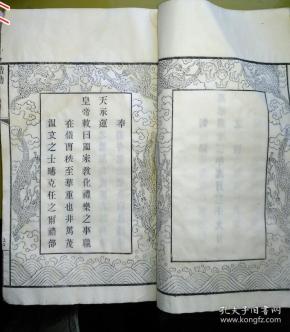 奉
天承運
皇帝敕曰國家敦化禮樂之事職
在儀曹秩至華重也非篤茂
溫文之士疇克任之爾禮部
孔夫子旧书网